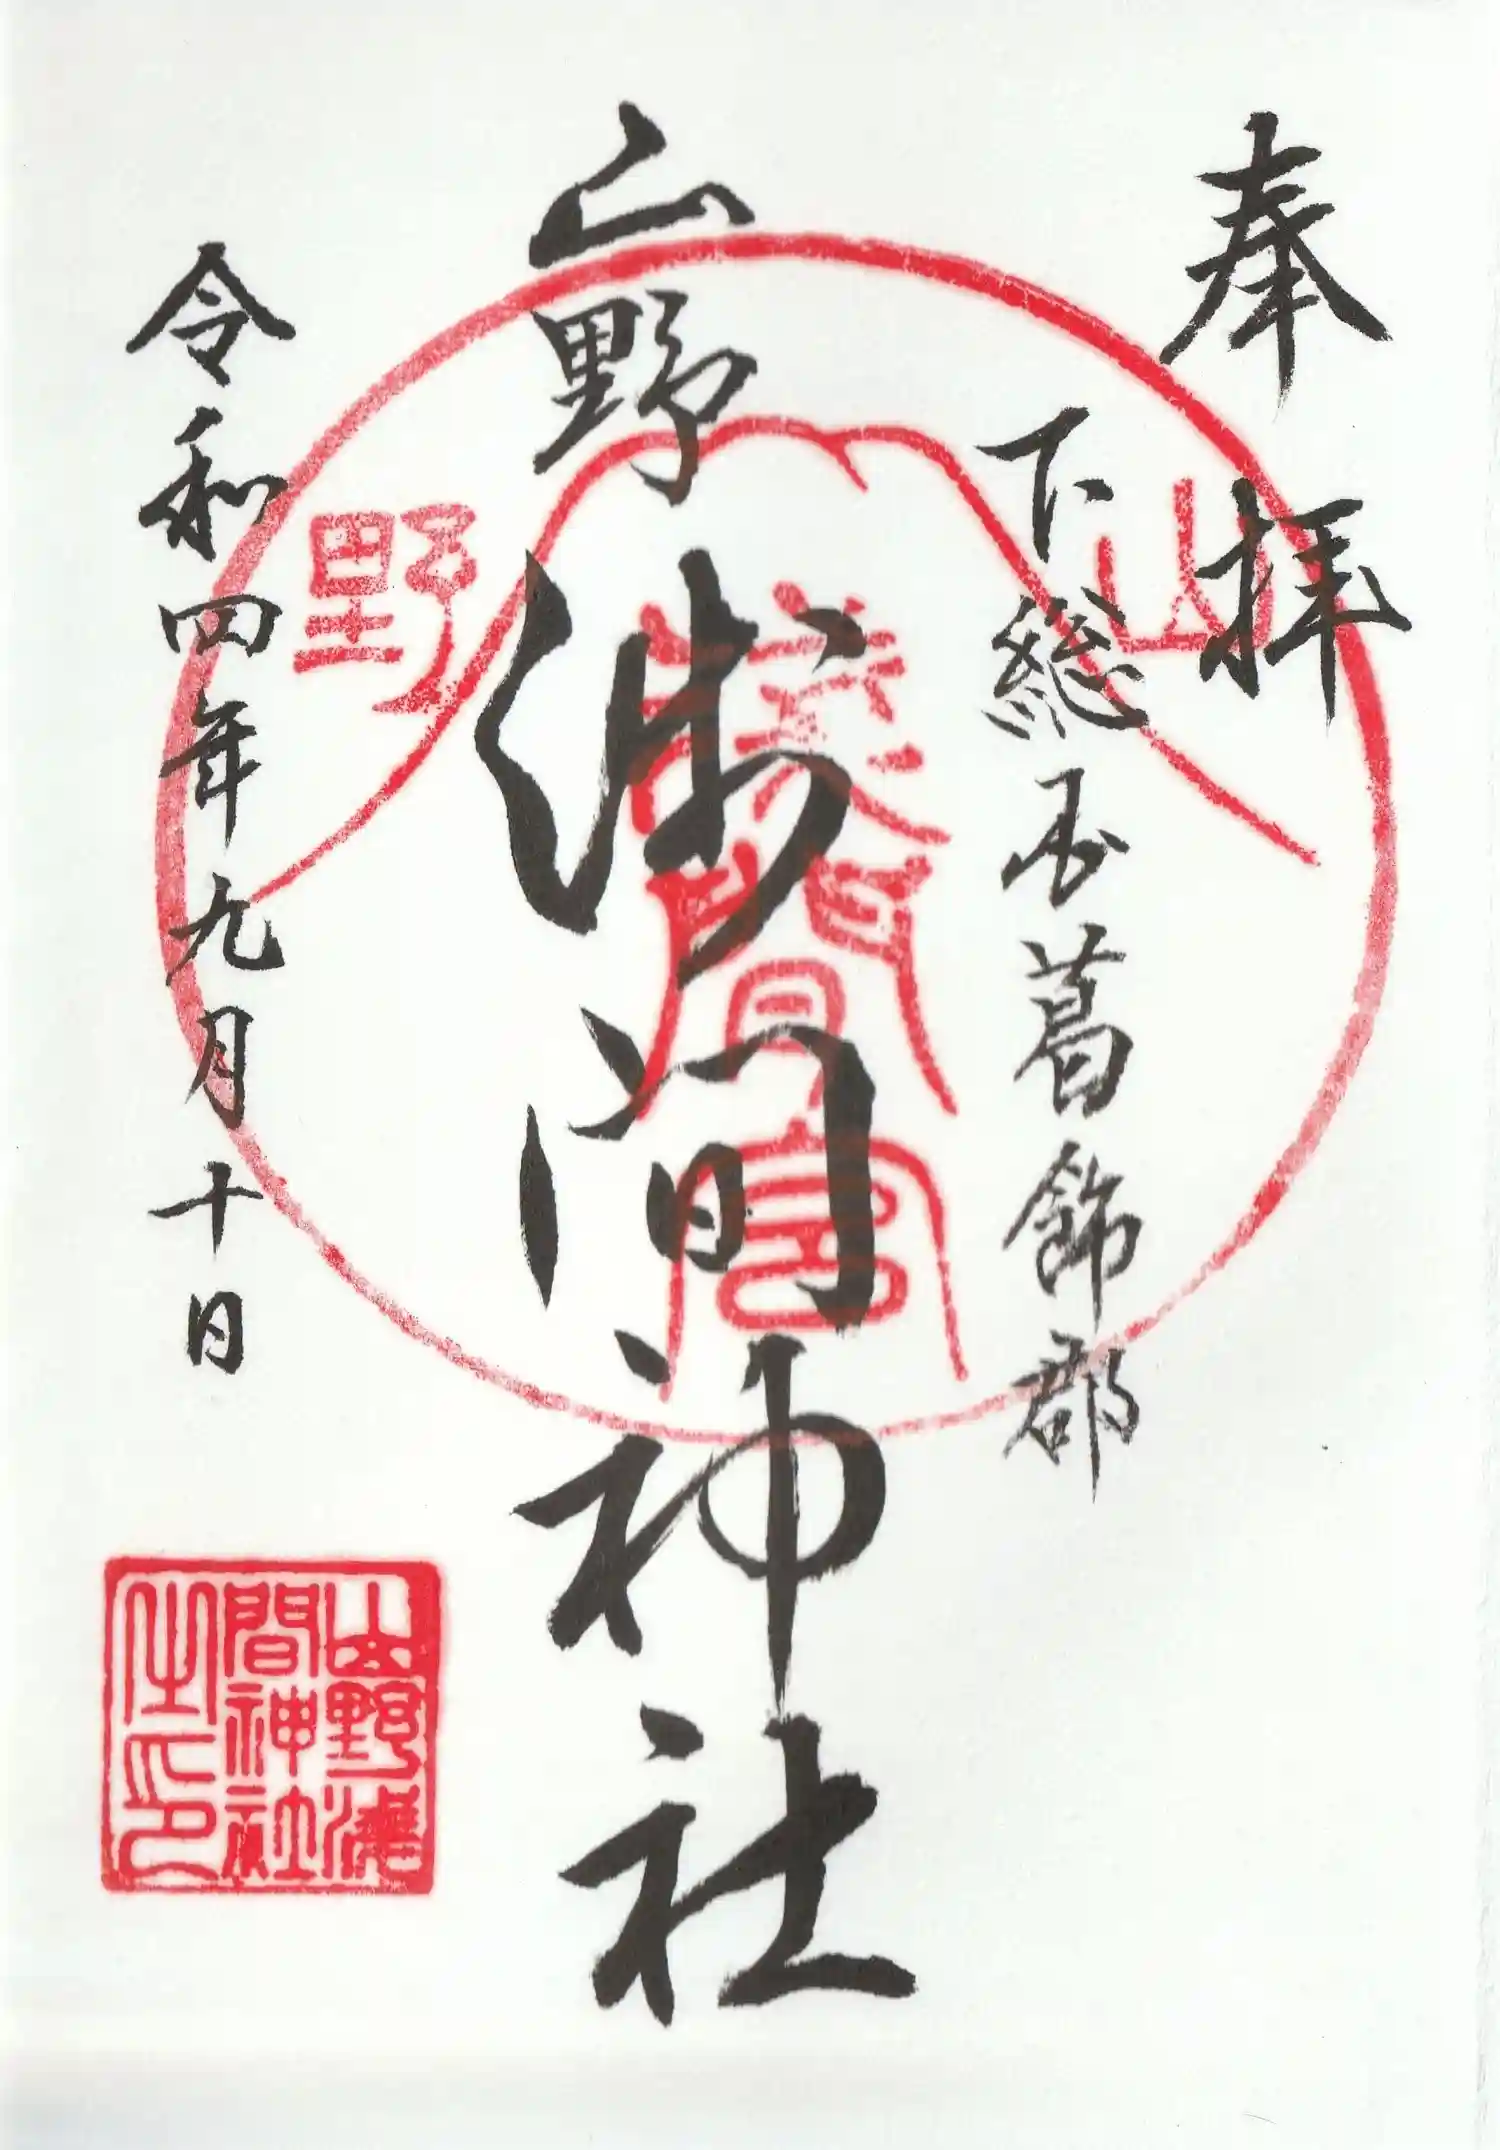 奉拝
下総国葛飾郡
山野浅間神社
令和四年九月十日
山野
浅間宮
山野浅
間神社
之印